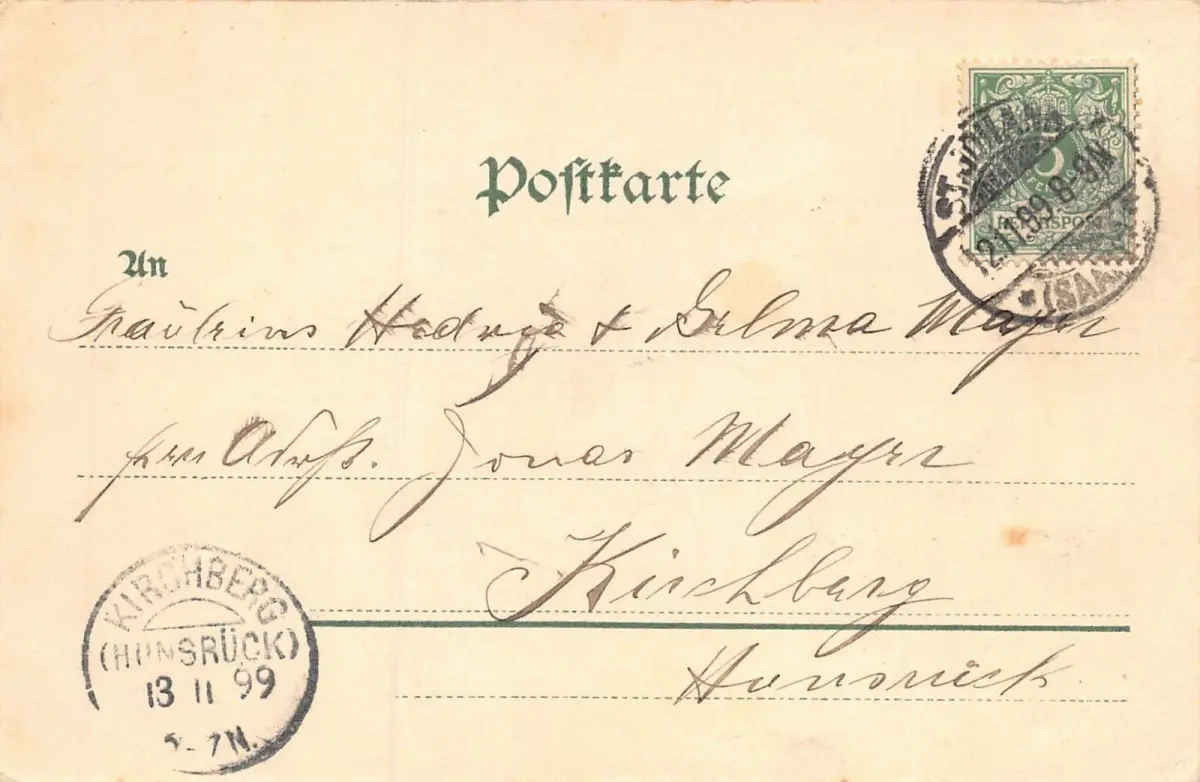 Postkarte
An
Fräuleins Hedwig & Selma Mayer
per Adreß. Jonas Mayer
Kirchberg
Hunsrück.
ST. JOHANN
12.11.99 8-9N
* (SAAR
5
REICHSPOST
KIRCHBERG
(HUNSRÜCK)
13 11 99
-7N.